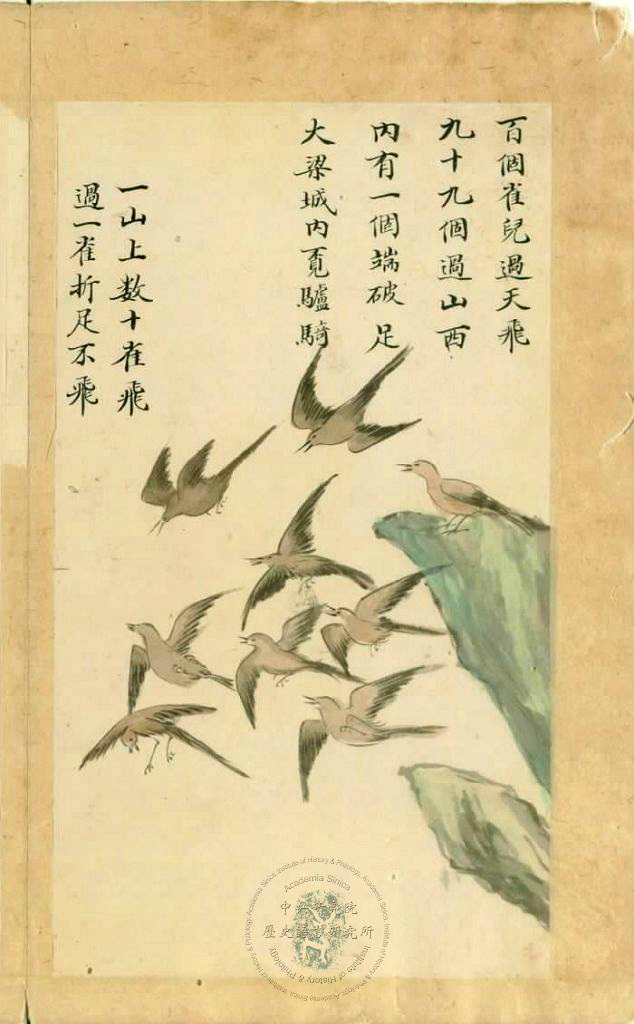 百個雀兒過天飛
九十九個過山西
內有一個端破足
大梁城內覔驢騎
一山上数十雀飛
過一雀折足不飛
Academia Sinica
中央研究院
歷史語言研究所
Institute of History & Philology